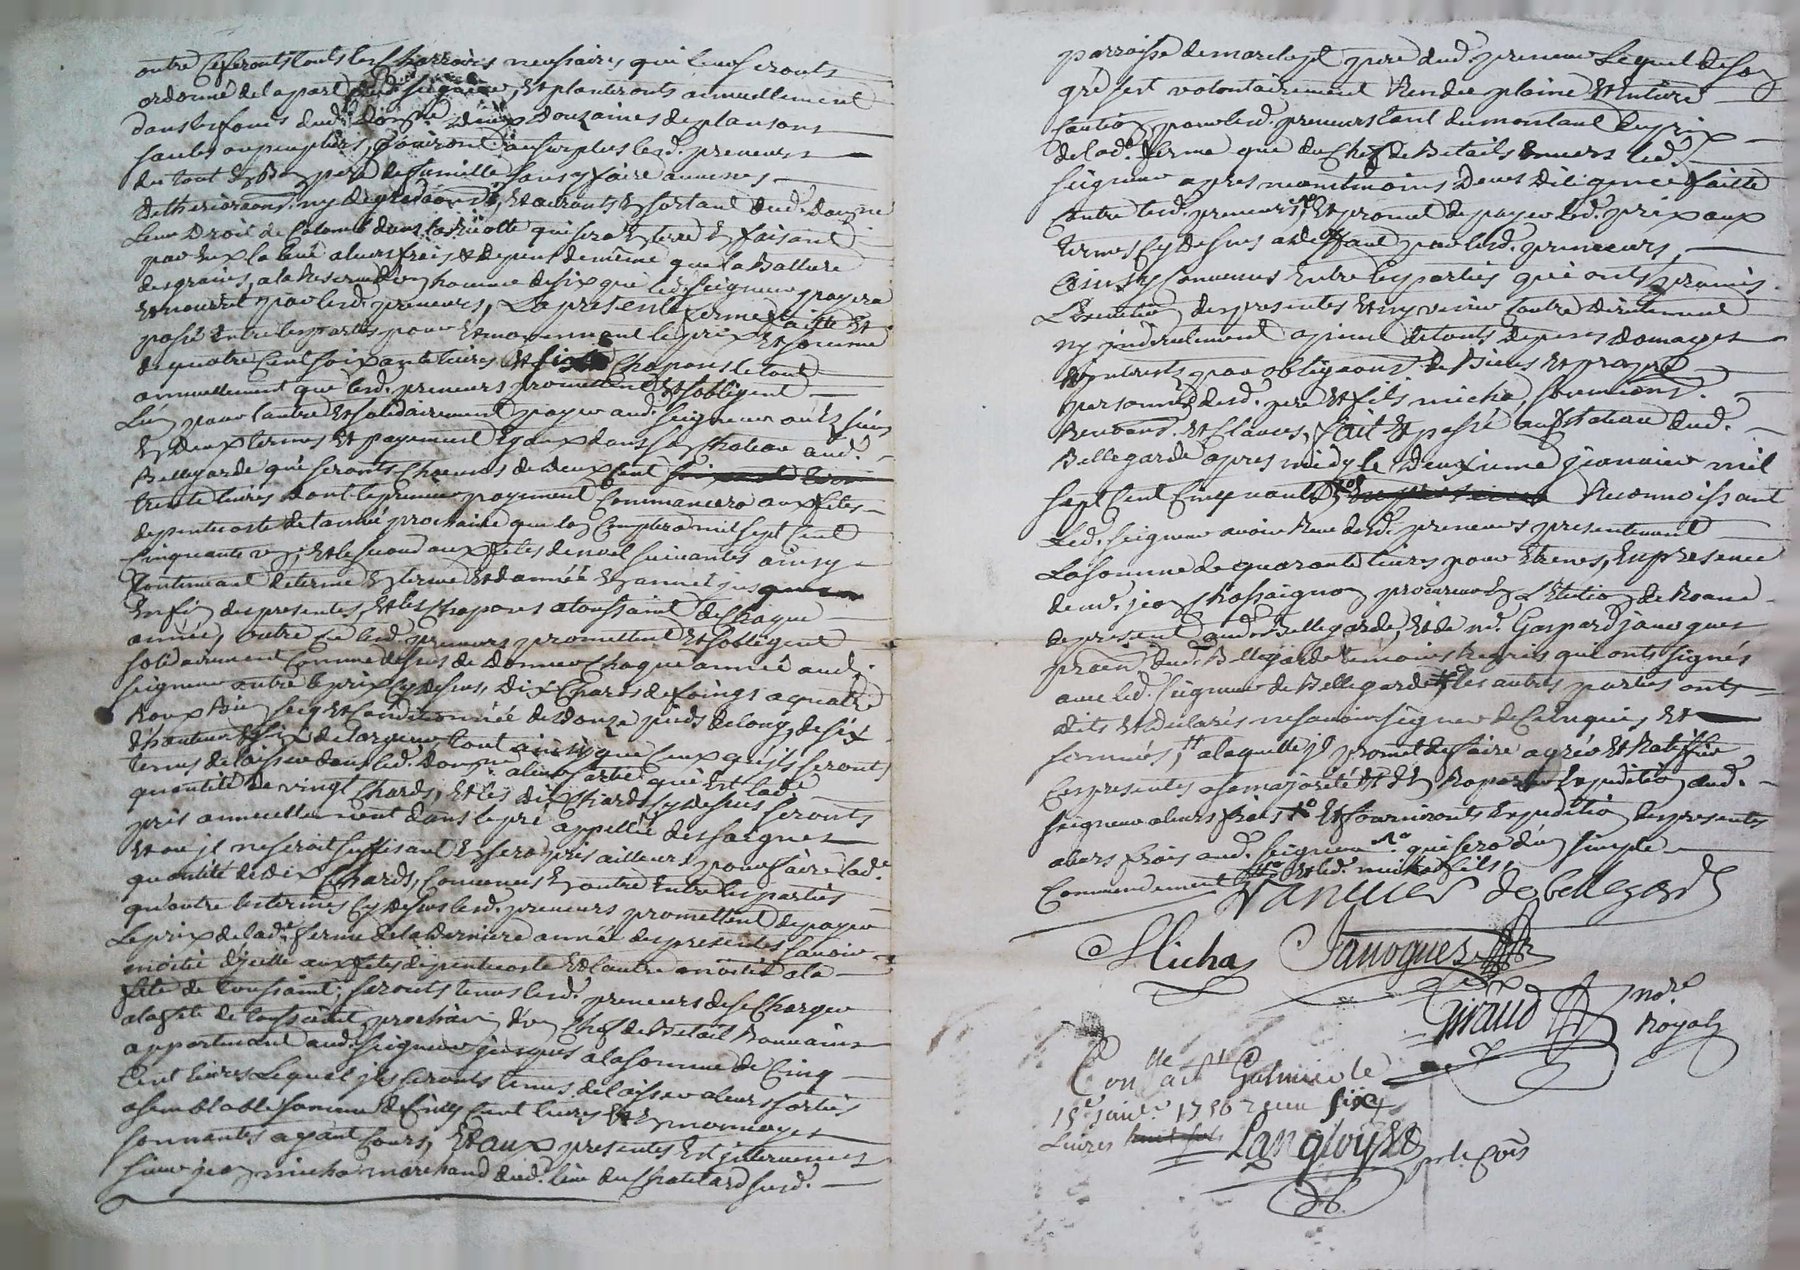 outre ce feronts touts les charrois nessaires qui leur seronts
ordonné de la part dud. seigneur, et planteronts annuellement
dans les fonds dud. Domne deux Douzaines de plansons
saules ou peupliers, jouiront au surplus lesd. preneurs
du tout en Bon pere de famille sans y faire aucunes
detheriorâons ny degradâons, et auronts en sortant dud. Domne
leur Droit de Colonne dans la qui sera en terre en faisant
par eux la levé a leurs frais et depens de même que la Batture
des grains, a la Reserve d'un homme de six que led. seigneur payera
et nourrit par lesd. preneurs, La presente ferme faitte et
passé entre les parties pour et moyennant le prix et somme
de quatre Cent soixante livres et six Chapons le tout
annuellement que lesd. preneurs promettent et s'obligent
L'un pour l'autre et solidairement payer aud. seigneur ou es siens
en deux termes et payement Egaux dans son chateau aud.
Bellegarde qui seronts Chacuns de deux Cent
trente livres dont le premier payement Commancera aux fêtes
de pentecoste de l'année prochaine que lon Comptera mil sept Cent
Cinquante six, et le second aux fêtes de noel suivantes ainsy
Continuant de terme en terme et d'année en année jusques
en fin des presentes, et les Chapons a toussaint de Chaque
année, outre ce lesd. preneurs promettent et s'obligent
solidairement Comme dessus de Donner Chaque année aud.
seigneur outre le prix Cy dessus, Dix Chards de foings a quatre
Roux Bien secq et Conditionnée de douze pieds de long, de six
d'hauteur et six de largeur, tout ainsy que Ceux qu'ils seronts
tenus de laisser dans led. Domne a leur sortie qui est lade
quantité de vingt Chards, et les dix Chards Cy dessus seronts
pris annuellement dans le pré appellée des saignes
et ou jl ne seroit suffisant en sera pris ailleurs pour faire lade
quantité de dix Chards, Convenus en outre entre les parties
qu'outre les termes Cy dessus lesd. preneurs promettent de payer
Le prix de lade ferme de la derniere année des presentes savoir
moitié d'jcelle aux fêtes de pentecoste et l'autre moitié a la
fête de toussaint; seronts tenus lesd. preneurs de se Charger
a la fête de toussaint prochain d'un Chef de Betail
appartenant aud. seigneur jusques a la somme de Cinq
Cent livres Lequel jls seronts tenus de laisser a leurs sorties
a semblable somme de Cinq Cent livres en monnoyes
sonnantes ayant Cours, Et aux presentes est jntervenu
sieur jean micha marchand dud. lieu du Chatelard susd.
parroisse de marcla pere dud. preneur Lequel de son
gré s'est volontairement Rendu plaine et entiere
Caution pour lesd. preneurs tant du montant du prix
de lade ferme que du Chef de Betails envers led.
seigneur apres neantmoins Deues Diligences faitte
Contre lesd. preneurs, et promet de payer led. prix aux
termes Cy dessus a deffaut par lesd. preneurs,
Ainsy Convenus entre les parties qui onts promis
L'execution des presentes et n'y venir Contre Directement
ny jndirectement a peine de touts depens domages
et jnterests par obligeans de Biens et propre
personne desd. pere et fils micha, soumissions.
Renvans. et Clauses, fait et passé au Chateau dud.
Bellegarde apres midy le deuxieme janvier mil
sept Cent Cinquante six Reconnoissant
Led. seigneur avoir Reçu desd. preneurs presentement
La somme de quaranté livres pour etrenes, En presence
de md. jean Chassaignon procureur en L'Election de Roane
de present aud. Bellegarde, et de md. Gaspard janoques
praen. dud. Bellegarde temoins Requis qui onts signés
avec led. seigneur de Bellegarde et les autres parties onts
dits et declarés ne savoir signer de Ce Enquis, et
sommés, a laquelle jl promet de faire agréer et Ratiffier
Ces presentes a sa majorité et en Raporter expedition aud.
seigneur a leurs frais et fournironts Expedition des presentes
a leurs frais aud. seigneur qui sera d'un simple
Commandement et led. micha fils,
Vanuier de bellegarde
Micha Janoques
Giraud nore
Royal
Conlle a St Galmier le
15e janv. 1756 reçu six
Livres huit sols
Langloys